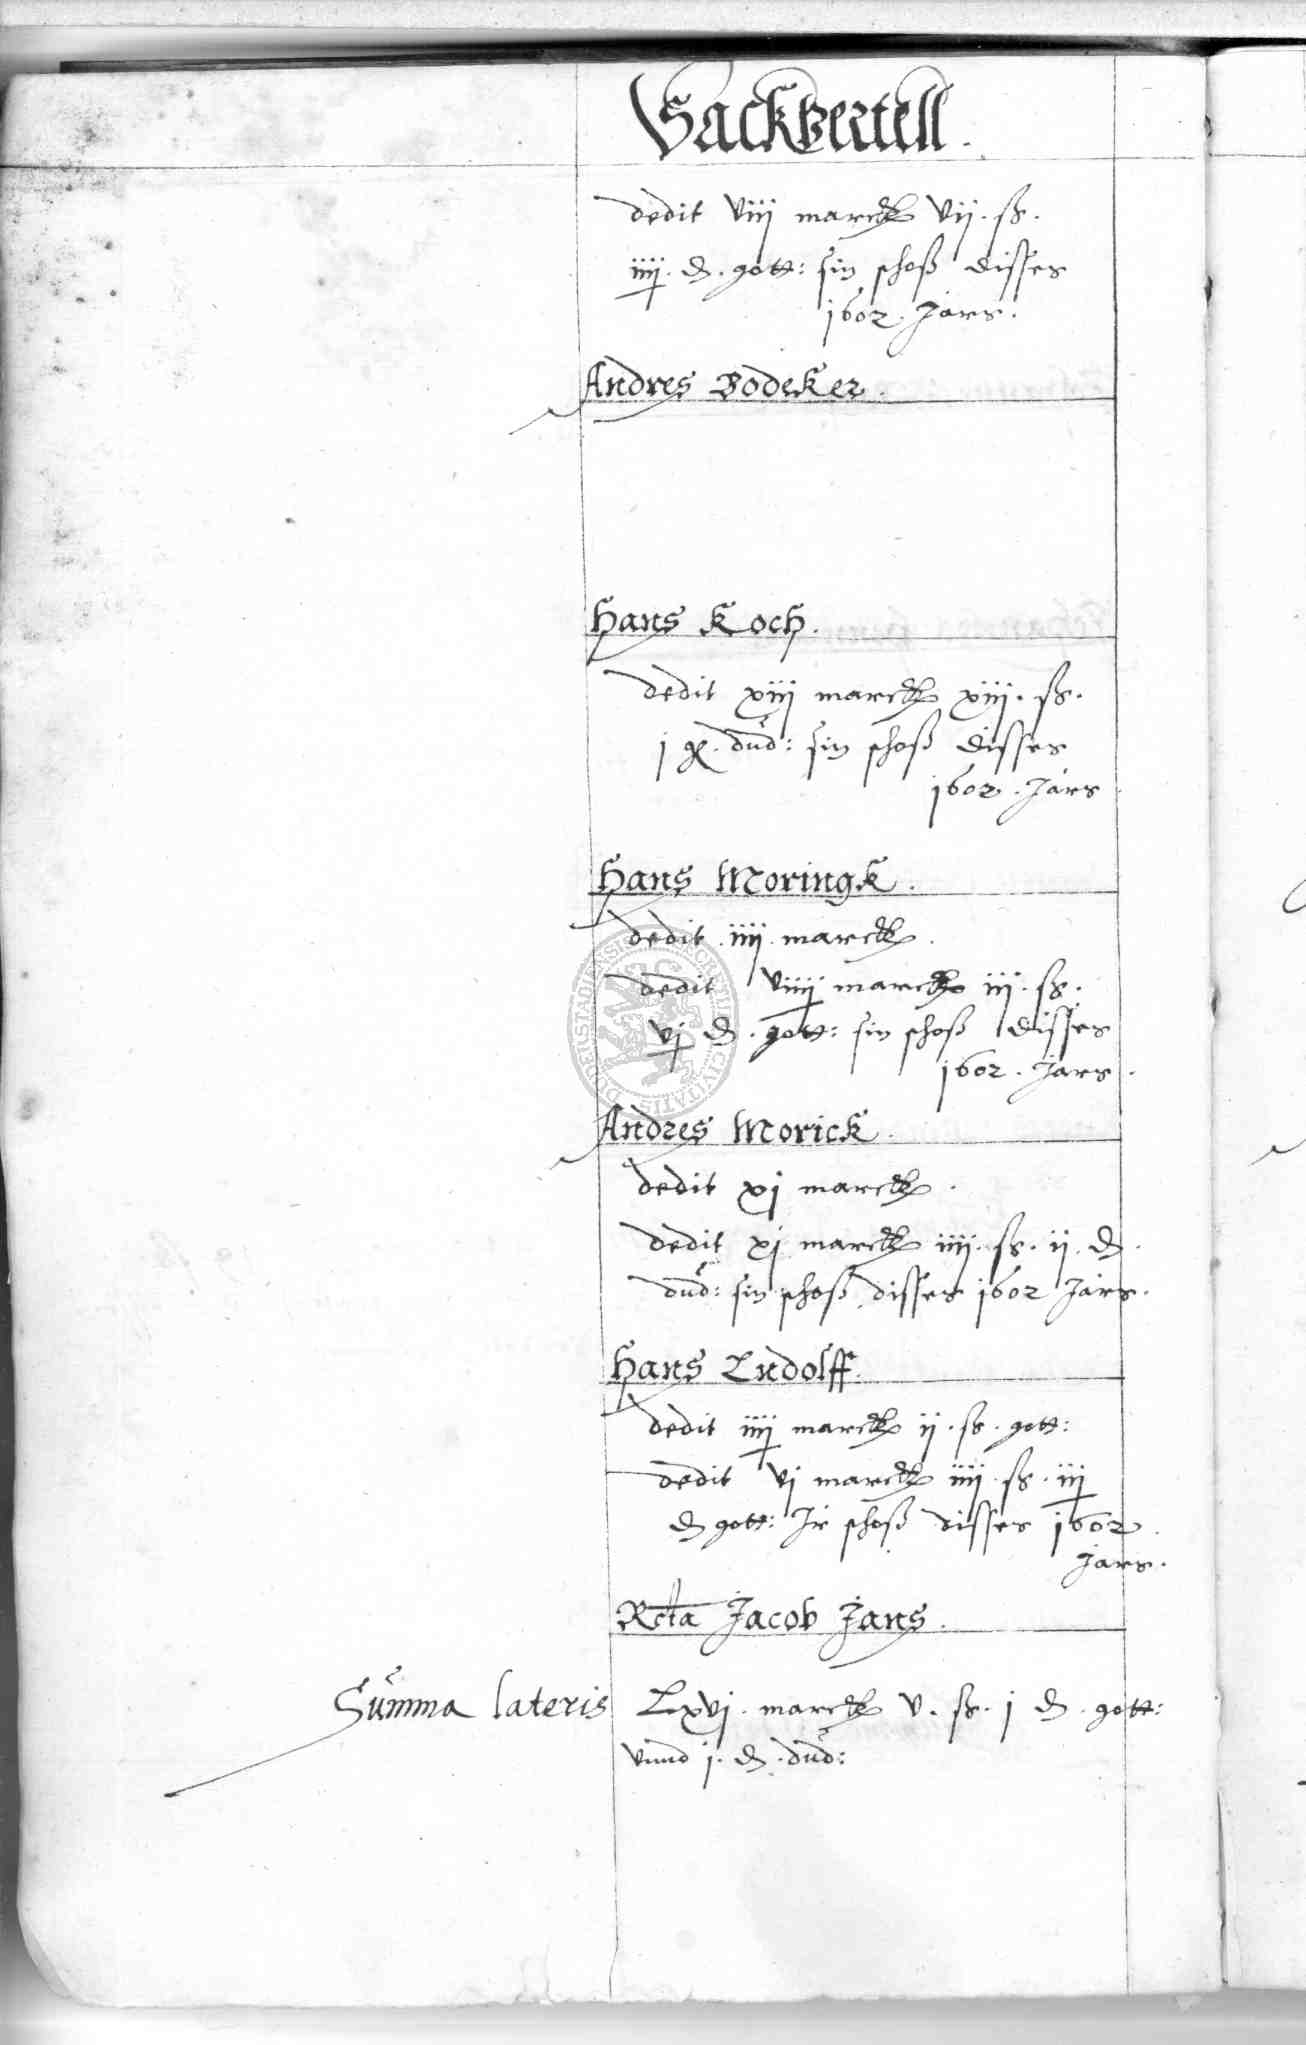 Sackvertell.
dedit viij marck vij. ß.
iiij. d. gott: sin schoß disses
1602. Jars.
Andres Bodeker.
Hans Koch.
dedit xiij marck xiij. ß.
j g. dud: sin schoß disses
1602. Jars
Hans Moringk.
dedit iiij marck.
dedit viiij marck iij. ß.
vj d. gott: sin schoß disses
1602. Jars.
Andres Morick.
dedit xj marck.
dedit xj marck iiij. ß. ij d.
dud: sin schoß disses 1602 Jars.
Hans Ludolff.
dedit iiij marck ij. ß. gott:
dedit vj marck iiij ß. iij
d gott: Ir schoß disses 1602.
Jars.
Rcta Jacob Jans.
Summa lateris Lxvj. marck v. ß. j d. gott:
vnnd j. d. dud:
SECRETUM CIVITATIS DUDERSTADIENSIS